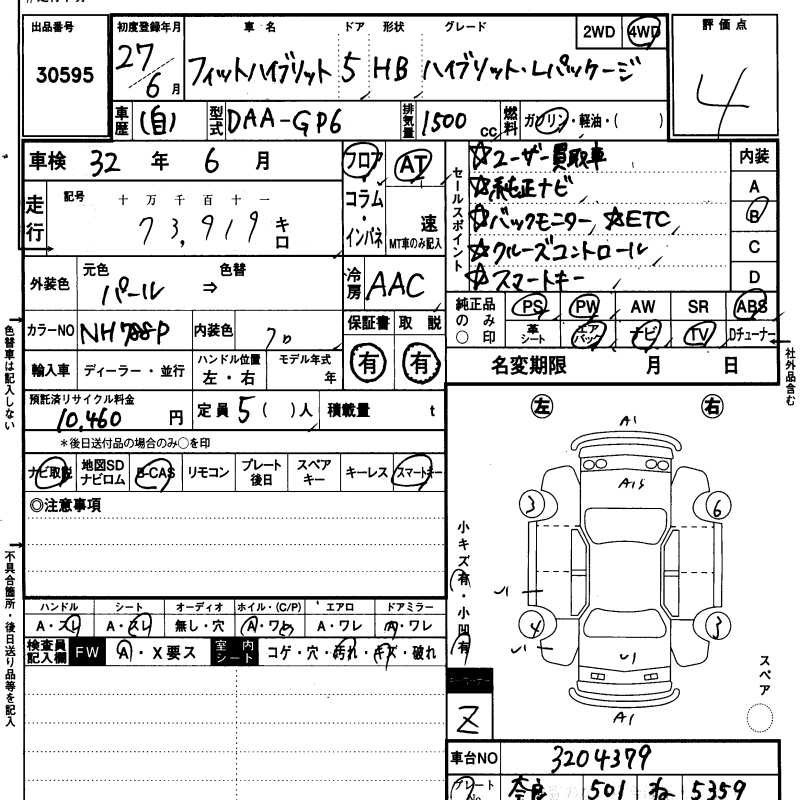 出品番号 初度登録年月 車名 ドア 形状 グレード 2WD 4WD 評価点
30595 27/6月 フィットハイブリット 5 HB ハイブリット・Lパッケージ 4
車歴 (自) 型式 DAA-GP6 排気量 1500cc 燃料 ガソリン・軽油・( )
車検 32年 6月 フロア AT セールスポイント ☆ユーザー買取車 内装
コラム・インパネ 速 MT車のみ記入 ☆純正ナビ A
走行 記号 十万千百十一 73,919キロ ☆バックモニター ☆ETC B
☆クルーズコントロール C
☆スマートキー D
外装色 元色 パール ⇒ 色替 冷房 AAC
純正品のみ○印 PS PW AW SR ABS
革シート エアバック ナビ TV Dチューナー
カラーNO NH788P 内装色 保証書 有 取説 有
名変期限 月 日
輸入車 ディーラー・並行 ハンドル位置 左・右 モデル年式 年
預託済リサイクル料金 10,460円 定員 5( )人 積載量 t
*後日送付品の場合のみ○を印
ナビ取説 地図SDナビロム B-CAS リモコン プレート後日 スペアキー キーレス スマートキー
◎注意事項
色替車は記入しない
不具合箇所・後日送り品等を記入
社外品含む
左 右
A1
A1S
3 6
小キズ有・小凹有
4 3
U1
A1
スペア
Z
ハンドル シート オーディオ ホイル・(C/P) エアロ ドアミラー
A・スレ A・スレ 無し・穴 A・ワレ A・ワレ A・ワレ
検査員記入欄 FW A・X要ス 室内シート コゲ・穴・汚れ・キズ・破れ
車台NO 3204379
プレートNo 奈良 501 ね 5359